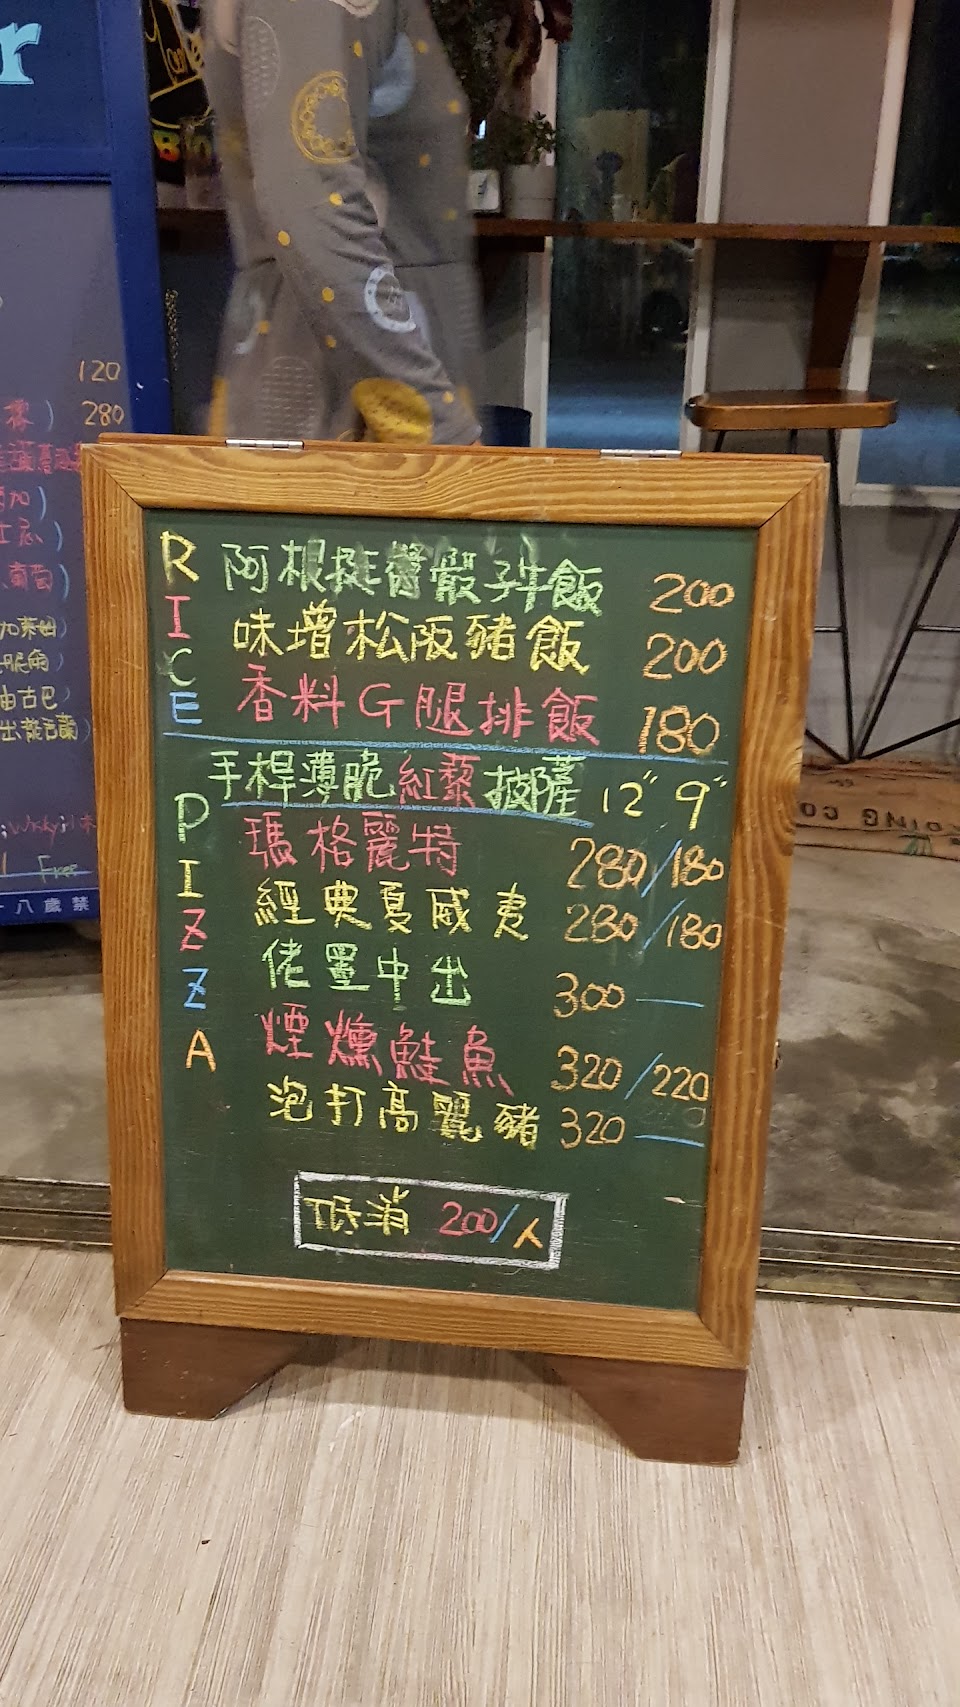 r
120
橡) 280
加)
士忌)
葡萄)
加泰迪)
油古巴)
Free
十八歲禁
RICE
阿根挺醬骰子牛飯 200
味增松阪豬飯 200
香料G腿排飯 180
手桿薄脆紅藜披薩 12" 9"
PIZZA
瑪格麗特 280/180
經典夏威夷 280/180
佬墨中出 300—
煙燻鮭魚 320/220
泡打高麗豬 320—
低消 200/人